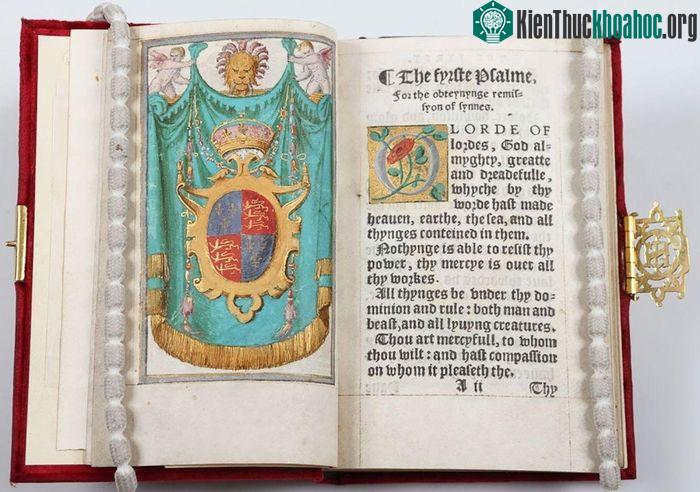 KienThuckhoahoc.org
¶ The fyrste Psalme,
For the obteynynge remis-
syon of synnes.
O LORDE OF
lordes, God al-
myghty, greatte
and dreadefulle,
whyche by thy
worde hast made
heauen, earthe, the sea, and all
thynges conteined in them.
Nothynge is able to resist thy
power, thy mercye is ouer all
thy workes.
All thynges be vnder thy do-
minion and rule: both man and
beast, and all lyuyng creatures.
Thou art mercyfull, to whom
thou wilt: and hast compassion
on whom it pleaseth the.
A ii Thy